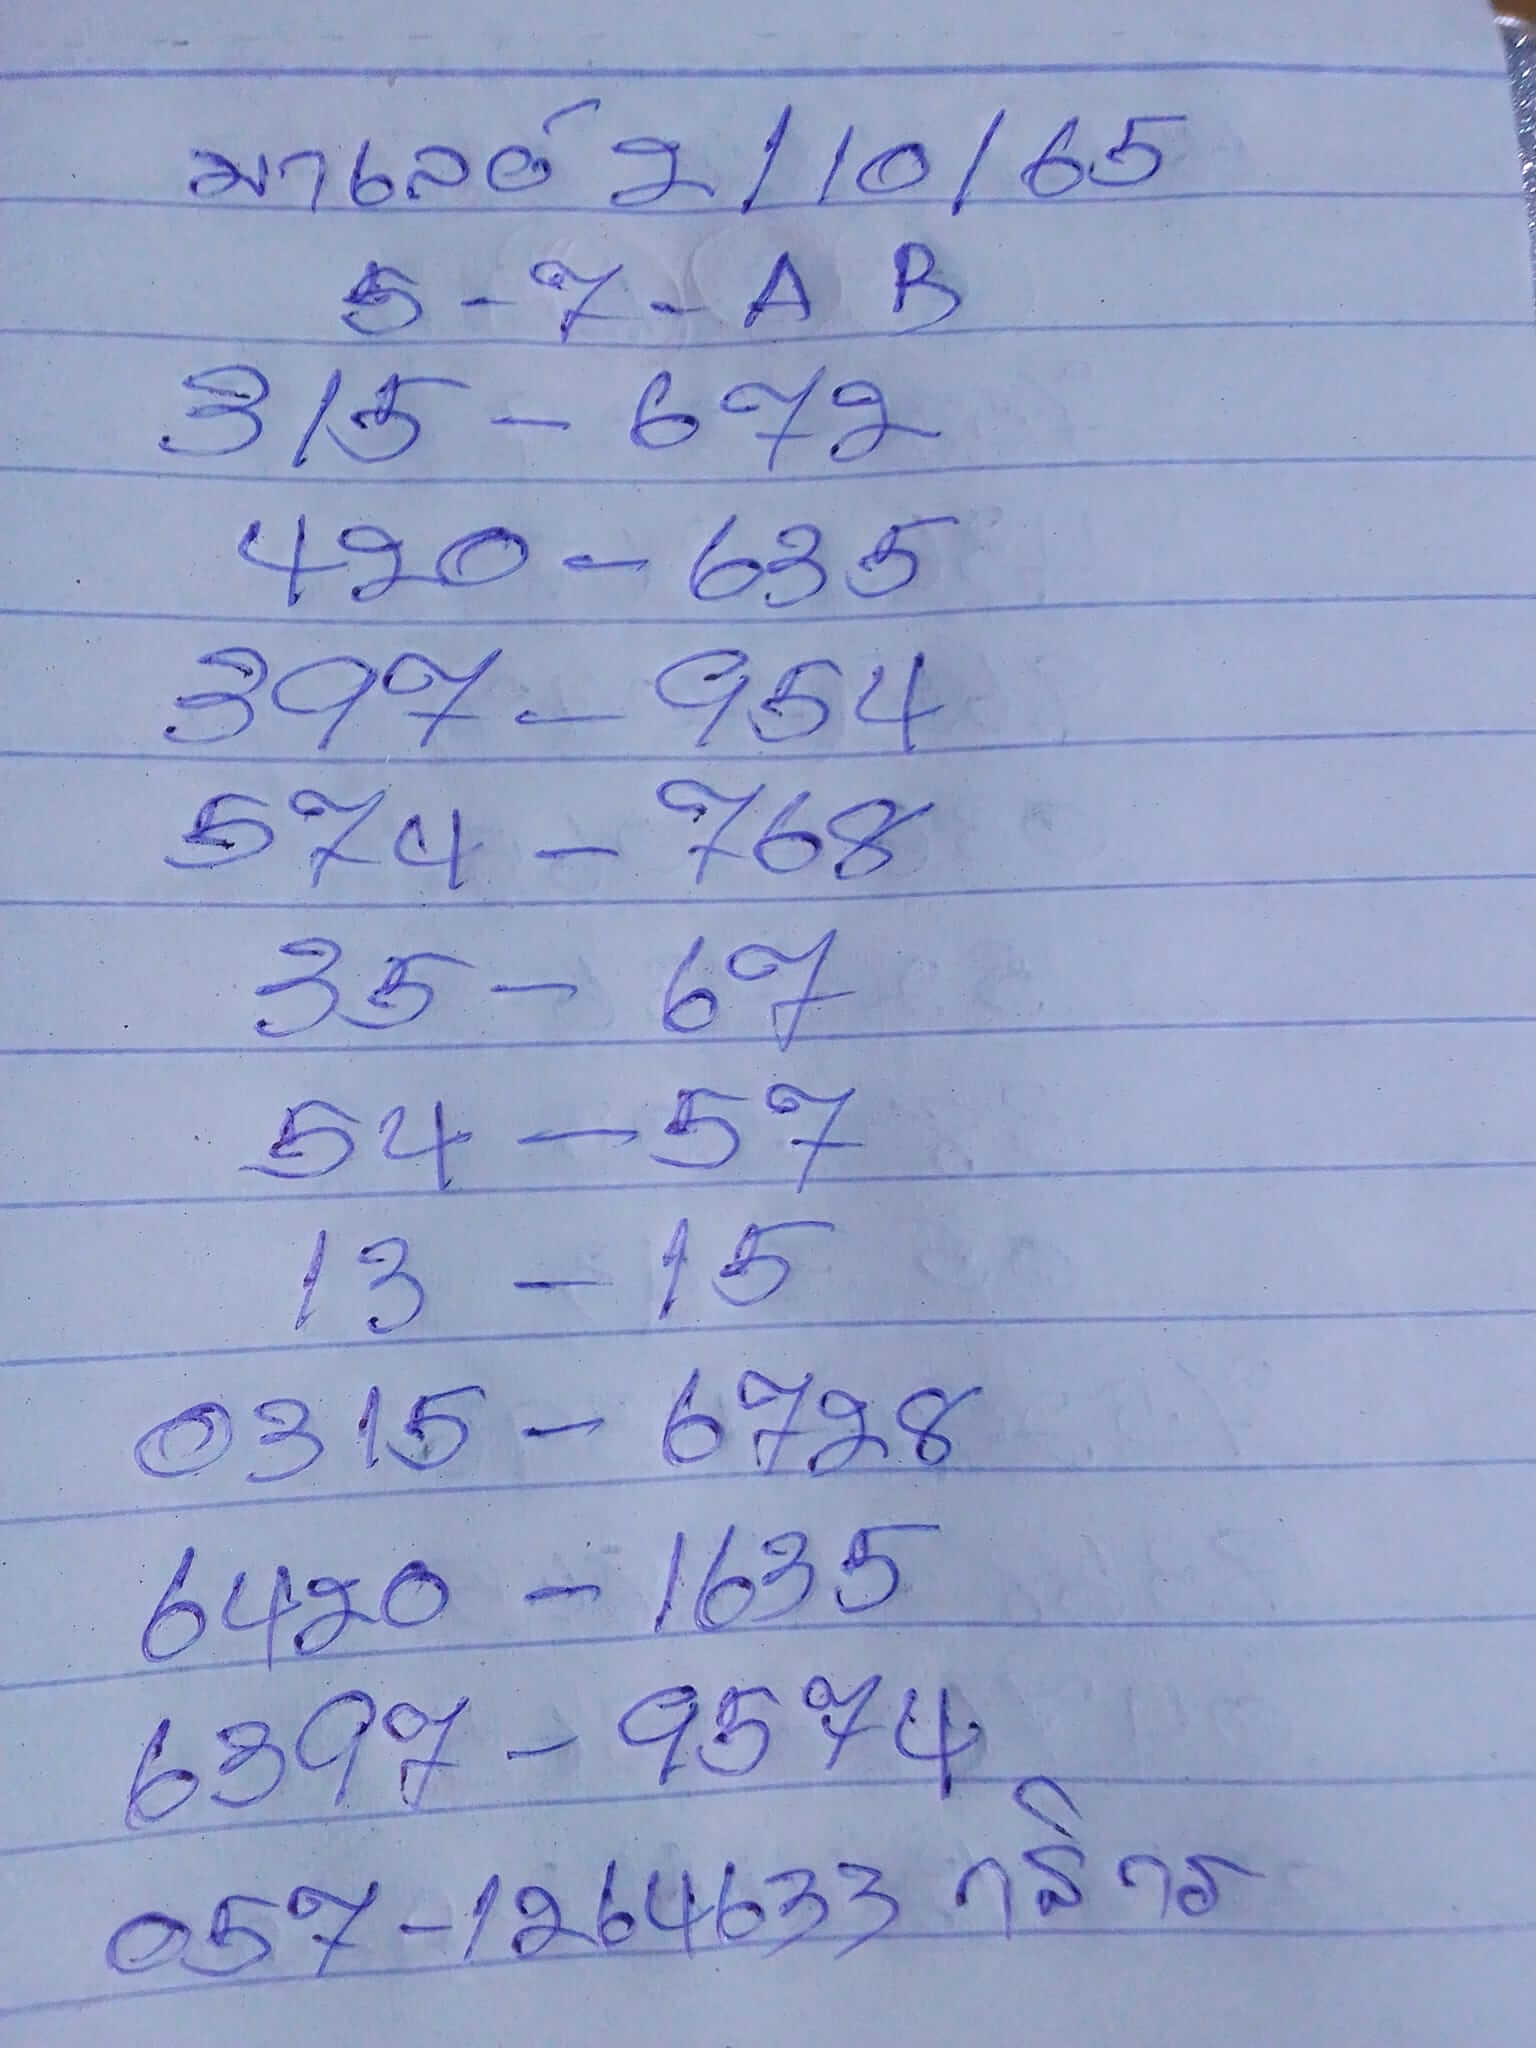 มาเลย์ 2/10/65
5-7-AB
315-672
420-635
397-954
574-768
35-67
54-57
13-15
0315-6728
6420-1635
6397-9574
057-1264633